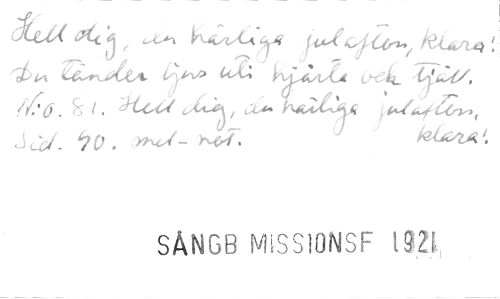 Hell dig, du härliga julafton, klara!
Du tänder ljus uti hjärta och tjäll.
N:o. 81. Hell dig, du härliga julafton,
klara!
Sid. 90. mel-not.
SÅNGB MISSIONSF 1921